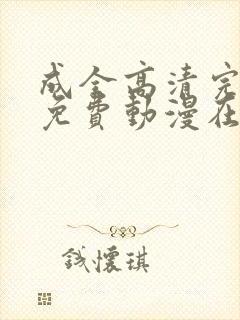 成全高清完
免費動漫在
钱懷琪